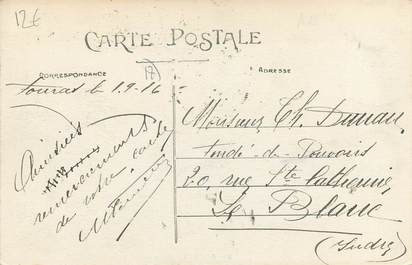 12€
CARTE POSTALE
CORRESPONDANCE
ADRESSE
17
le 1-9-16
remerciements
de votre carte
Monsieur Ch. Dunan
Fondé-de-Pouvoirs
20, rue Ste Catherine
Le Blanc
(Indre)